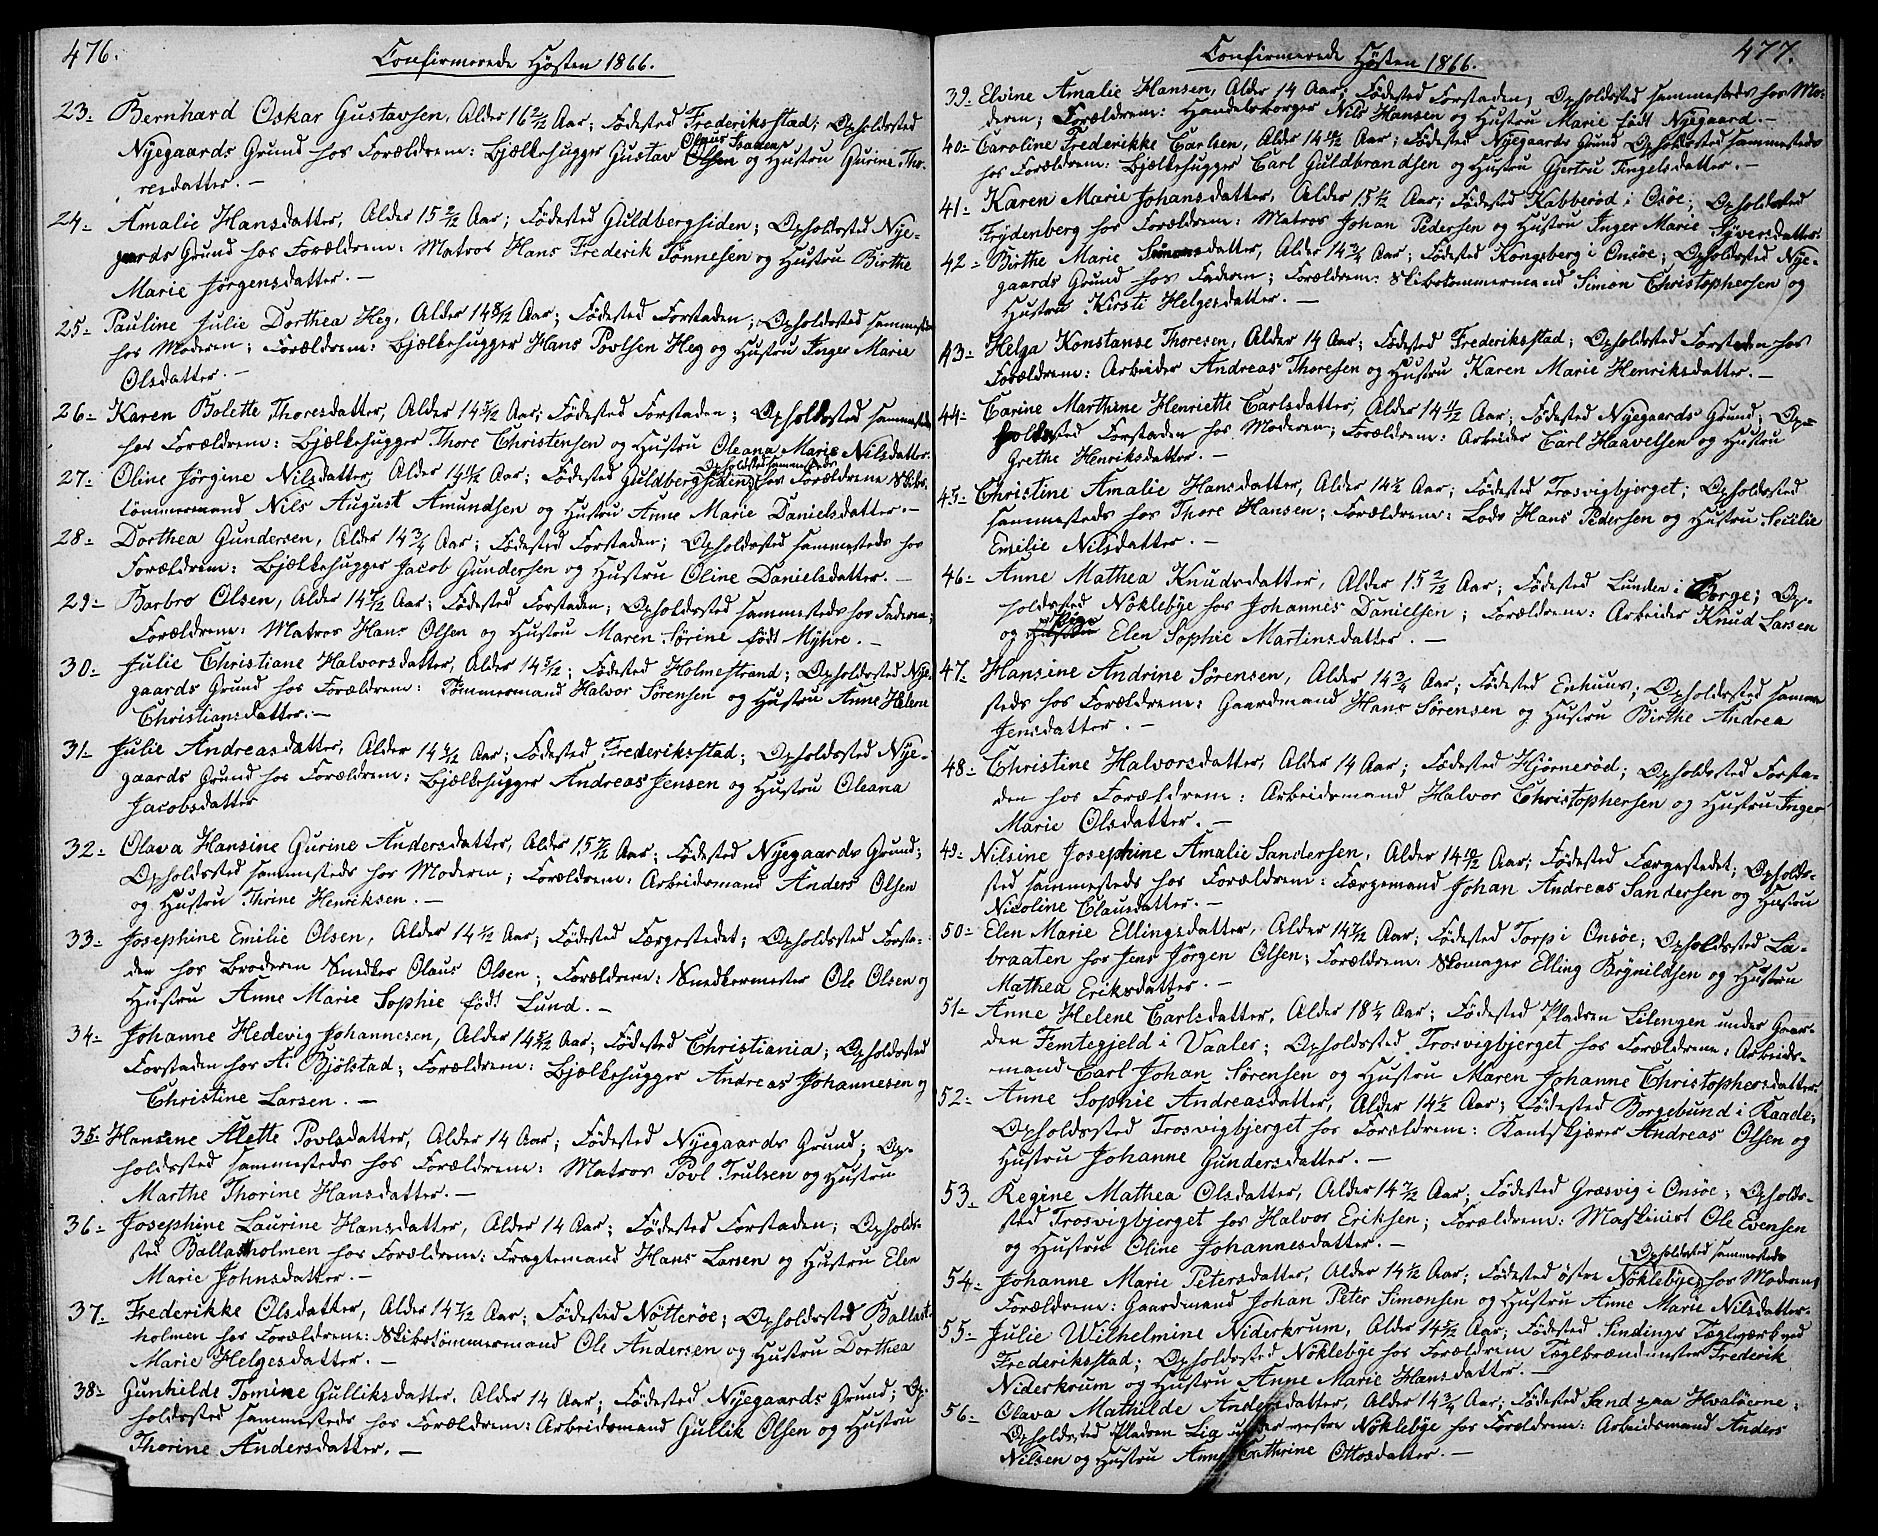 476.
Confirmerede Høsten 1866.
23- Bernhard Oskar Gustavsen, Alder 16 2/12 Aar; Fødested Frederiksstad; Opholdssted
Nyegaards Grund hos Forældrene: Bjælkehugger Gustav Olsen og Hustru Gurine Tho-
resdatter. —
24- Amalie Hansdatter, Alder 15 2/12 Aar; Fødested Guldbergsiden; Opholdssted Nye-
gaards Grund hos Forældrene: Matros Hans Frederik Tønnesen og Hustru Birthe
Marie Jørgensdatter. —
25- Pauline Julie Dorthea Heg, Alder 14 8/12 Aar; Fødested Forstaden; Opholdssted sammesteds
hos Moderen; Forældrene: Bjælkehugger Hans Povlsen Heg og Hustru Inger Marie
Olsdatter. —
26- Karen Bolette Thoresdatter, Alder 14 5/12 Aar; Fødested Forstaden; Opholdssted sammesteds
hos Forældrene: Bjælkehugger Thore Christensen og Hustru Oleana Marie Nilsdatter.
27- Oline Jørgine Nilsdatter, Alder 14 1/2 Aar; Fødested Guldbergsiden; Opholdssted sammesteds hos Forældrene Skibs-
tømmermand Nils August Amundsen og Hustru Anne Marie Danielsdatter. —
28- Dorthea Gundersen, Alder 14 3/4 Aar; Fødested Forstaden; Opholdssted sammesteds hos
Forældrene: Bjælkehugger Jacob Gundersen og Hustru Oline Danielsdatter. —
29- Barbro Olsen, Alder 14 7/12 Aar; Fødested Forstaden; Opholdssted sammesteds hos Faderen;
Forældrene: Matros Hans Olsen og Hustru Maren Sørine født Myhre. —
30- Julie Christiane Halvorsdatter, Alder 14 5/12; Fødested Holmestrand; Opholdssted Nye-
gaards Grund hos Forældrene: Tømmermand Halvor Sørensen og Hustru Anne Helene
Christiansdatter. —
31- Julie Andreasdatter, Alder 14 1/2 Aar; Fødested Frederiksstad; Opholdssted Nye-
gaards Grund hos Forældrene: Bjælkehugger Andreas Jensen og Hustru Oleana
Jacobsdatter
32- Olava Hansine Gurine Andersdatter, Alder 15 7/12 Aar; Fødested Nyegaards Grund;
Opholdssted sammesteds hos Moderen; Forældrene: Arbeidsmand Anders Olsen
og Hustru Thrine Henriksen. —
33- Josephine Emilie Olsen, Alder 14 1/2 Aar; Fødested Færgestedet; Opholdssted Forsta-
den hos Broderen Snedker Olaus Olsen; Forældrene: Snedkermester Ole Olsen og
Hustru Anne Marie Sophie født Lund. —
34- Johanne Hedevig Johannesen, Alder 14 5/12 Aar; Fødested Christiania; Opholdssted
Forstaden hos A. Bjölstad; Forældrene: Bjælkehugger Andreas Johannesen og
Christine Larsen. —
35- Hansine Alette Povlsdatter, Alder 14 Aar; Fødested Nyegaards Grund; Op-
holdssted sammesteds hos Forældrene: Matros Povl Trulsen og Hustru
Marthe Thorine Hansdatter. —
36- Josephine Laurine Hansdatter, Alder 14 Aar; Fødested Forstaden; Opholds-
sted Ballastholmen hos Forældrene: Fragtemand Hans Larsen og Hustru Elen
Marie Johnsdatter. —
37- Frederikke Olsdatter, Alder 14 7/12 Aar; Fødested Nötteröe; Opholdssted Ballast-
holmen hos Forældrene: Skibstømmermand Ole Andersen og Hustru Dorthea
Marie Helgesdatter. —
38- Gunhilde Tomine Gulliksdatter, Alder 14 Aar; Fødested Nyegaards Grund; Op-
holdssted sammesteds hos Forældrene: Arbeidsmand Gullik Olsen og Hustru
Thorine Andersdatter. —
477.
Confirmerede Høsten 1866.
39- Elvine Amalie Hansen, Alder 14 Aar; Fødested Forstaden; Opholdssted sammesteds hos Mo-
deren; Forældrene: Handelsborger Nils Hansen og Hustru Marie født Nyegaard. —
40- Caroline Frederikke Carlsen, Alder Aar; Fødested Nyegaards Grund Opholdssted sammesteds
hos Forældrene: Bjælkehugger Carl Guldbrandsen og Hustru Gjertru Tingelsdatter. —
41- Karen Marie Johansdatter, Alder 15 1/2 Aar; Fødested Kabberöd i Osöe; Opholdssted
Frydenberg hos Forældrene: Matros Johan Pedersen og Hustru Inger Marie Syversdatter.
42- Birthe Marie Simonsdatter, Alder 14 3/4 Aar; Fødested Kongsberg i Onsöe; Opholdssted Nye-
gaards Grund hos Faderen; Forældrene: Skibstømmermand Simon Christophersen og
Hustru Kirsti Helgesdatter. —
43- Helga Konstanse Thoresen, Alder 14 Aar; Fødested Frederiksstad; Opholdssted Forstaden hos
Forældrene: Arbeider Andreas Thoresen og Hustru Karen Marie Henriksdatter. —
44- Carine Marthine Henriette Carlsdatter, Alder 14 1/2 Aar; Fødested Nyegaards Grund; Op-
holdssted Forstaden hos Moderen; Forældrene: Arbeider Carl Haavelsen og Hustru
Grethe Henriksdatter. —
45- Christine Amalie Hansdatter, Alder 14 1/2 Aar; Fødested Trosvigbjerget; Opholdssted
sammesteds hos Thore Hansen; Forældrene: Lods Hans Pedersen og Hustru Secilie
Emilie Nilsdatter. —
46- Anne Mathea Knudsdatter, Alder 15 2/12 Aar; Fødested Lunden i Borge; Op-
holdssted Nöklebye hos Johannes Danielsen; Forældrene: Arbeider Knud Larsen
og Pige Elen Sophie Martinsdatter. —
47- Hansine Andrine Sörensen, Alder 14 3/4 Aar; Fødested Enhuus; Opholdssted samme-
steds hos Forældrene: Gaardmand Hans Sörensen og Hustru Birthe Andrea
Jensdatter. —
48- Christine Halvorsdatter, Alder 14 Aar; Fødested Hjørneröd; Opholdssted Forsta-
den hos Forældrene: Arbeidsmand Halvor Christophersen og Hustru Inger
Marie Olsdatter. —
49- Nilsine Josephine Amalie Sandersen, Alder 14 10/12 Aar; Fødested Færgestedet; Opholds-
sted sammesteds hos Forældrene: Færgemand Johan Andreas Sandersen og Hustru
Nicoline Clausdatter. —
50- Elen Marie Ellingsdatter, Alder 14 7/12 Aar; Fødested Torp i Onsöe; Opholdssted La-
braaten hos Jens Jörgen Olsen; Forældrene: Skomager Elling Brynildsen og Hustru
Mathea Eriksdatter. —
51- Anne Helene Carlsdatter, Alder 18 1/4 Aar; Fødested Pladsen Lilengen under Gaar-
den Femtegjeld i Vaaler; Opholdssted Trosvigbjerget hos Forældrene: Arbeids-
mand Carl Johan Sörensen og Hustru Maren Johanne Christophersdatter.
52- Anne Sophie Andreasdatter, Alder 14 1/2 Aar; Fødested Borgebund i Raade;
Opholdssted Trosvigbjerget hos Forældrene: Kantskjærer Andreas Olsen og
Hustru Johanne Gundersdatter. —
53- Regine Mathea Olsdatter, Alder 14 7/12 Aar; Fødested Græsvig i Onsöe; Opholds-
sted Trosvigbjerget hos Halvor Eriksen; Forældrene: Maskinist Ole Evensen
og Hustru Oline Johannesdatter. —
54- Johanne Marie Petersdatter, Alder 14 1/2 Aar; Fødested østre Nöklebye; Opholdssted sammesteds hos Moderen;
Forældrene: Gaardmand Johan Peter Simonsen og Hustru Anne Marie Nilsdatter.
55- Julie Wilhelmine Niderkrum, Alder 14 5/12 Aar; Fødested Sindings Taglværk ved
Frederiksstad; Opholdssted Nöklebye hos Forældrene Teglbrændmester Frederik
Niderkrum og Hustru Anne Marie Hansdatter. —
56- Olava Mathilde Andersdatter, Alder 14 3/4 Aar; Fødested Sand paa Hvalöerne;
Opholdssted Pladsen Lia under vestre Nöklebye hos Forældrene: Arbeidsmand Anders
Nilsen og Hustru Anne Cathrine Ottosdatter. —